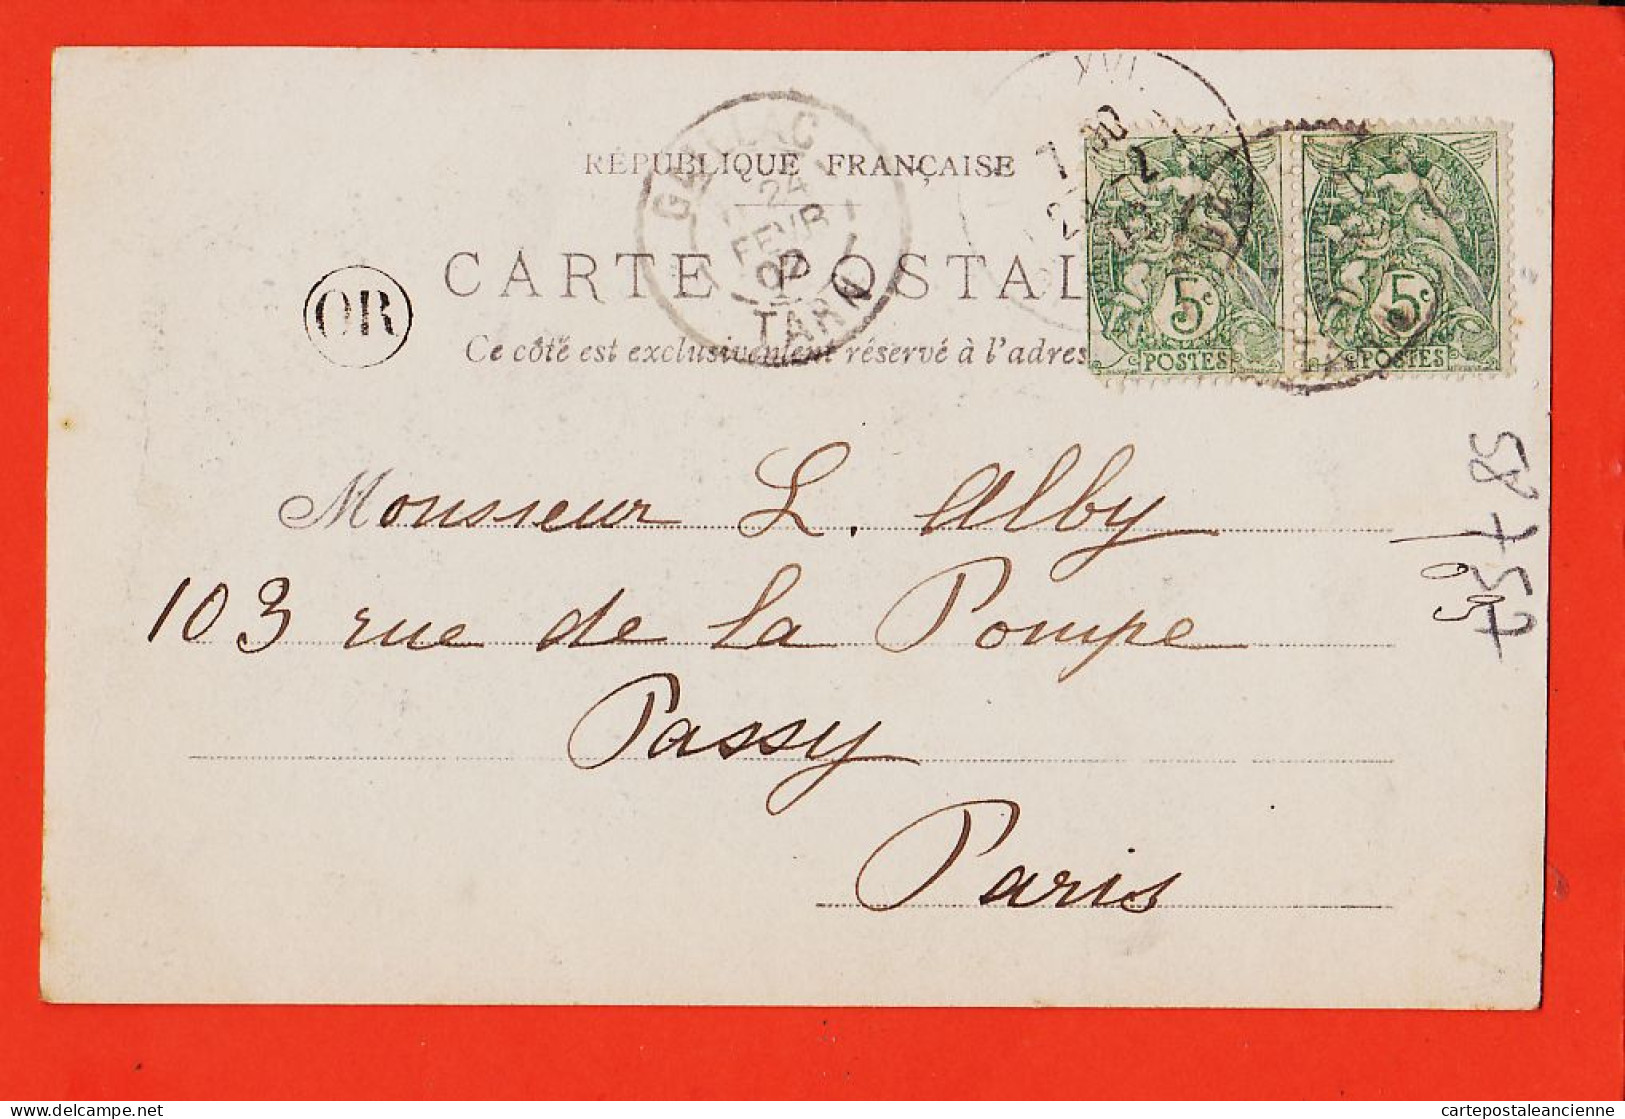 RÉPUBLIQUE FRANÇAISE
CARTE POSTAL
Ce côté est exclusivement réservé à l'adres
OR
GAILLAC
24
FEVR
02
TARN
XVI
7 30
5c
POSTES
5c
POSTES
Monsieur L. Alby
103 rue de la Pompe
Passy
Paris
cartepostaleancienne.com
cartepostaleancienne